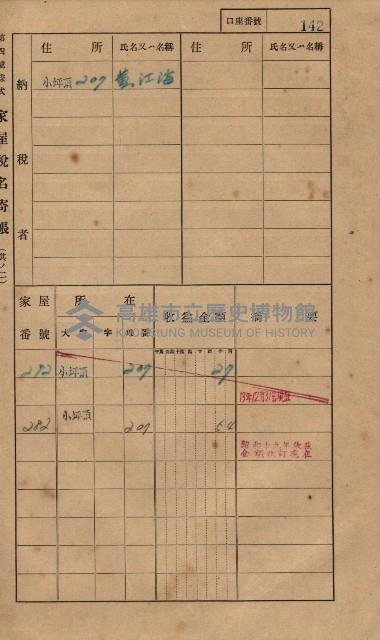 口座番號 142
第四號樣式 家屋稅名寄帳 (共ノ二)
納稅者
住所 氏名又ハ名稱 住所 氏名又ハ名稱
小坪頂 207
家屋番號 所在 收益金額 摘要
大字 字 地番
272 小坪頂 207 27
19年12月31日現在
282 小坪頂 207 64
昭和十九年收益
金額改訂現在
高雄市立歷史博物館
KAOHSIUNG MUSEUM OF HISTORY